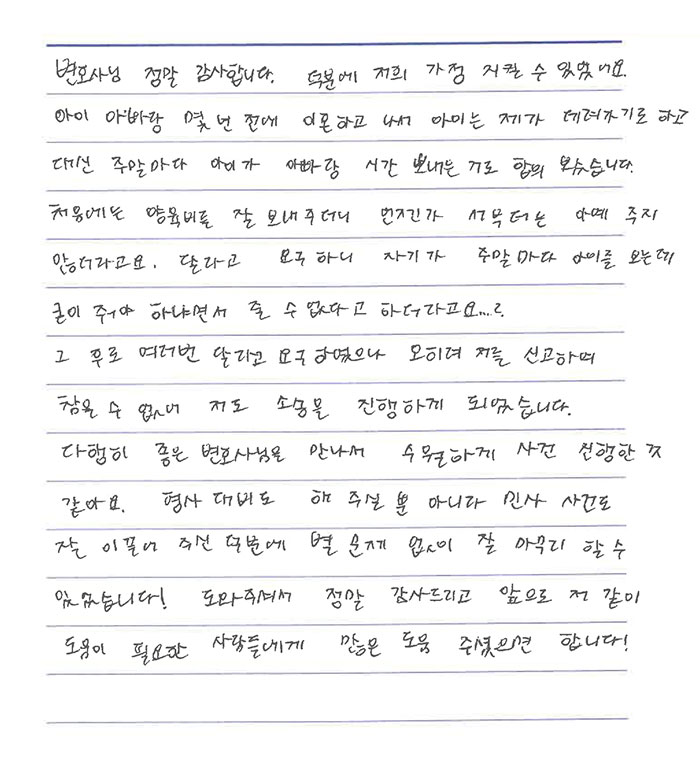 변호사님 정말 감사합니다. 덕분에 저희 가정 지킬 수 있었어요.
아이 아빠랑 몇 번 전에 이혼하고 나서 아이는 제가 데려가기로 하고
대신 주말마다 아이가 아빠랑 시간 보내는 거로 합의 봤습니다.
처음에는 양육비를 잘 보내주더니 언젠가 서부터는 아예 주지
않더라고요. 달라고 요구하니 자기가 주말마다 아이를 보는데
굳이 줘야 하냐면서 줄 수 없다고 하더라고요....?
그 후로 여러번 달라고 요구하였으나 오히려 저를 신고하며
참을 수 없어 저도 소송을 진행하게 되었습니다.
다행히 좋은 변호사님을 만나서 수월하게 사건 진행한 것
같아요. 형사 대비도 해 주실 뿐 아니라 민사 사건도
잘 이끌어 주신 덕분에 별 문제 없이 잘 마무리 할 수
있었습니다! 도와주셔서 정말 감사드리고 앞으로 저 같이
도움이 필요한 사람들에게 많은 도움 주셨으면 합니다!